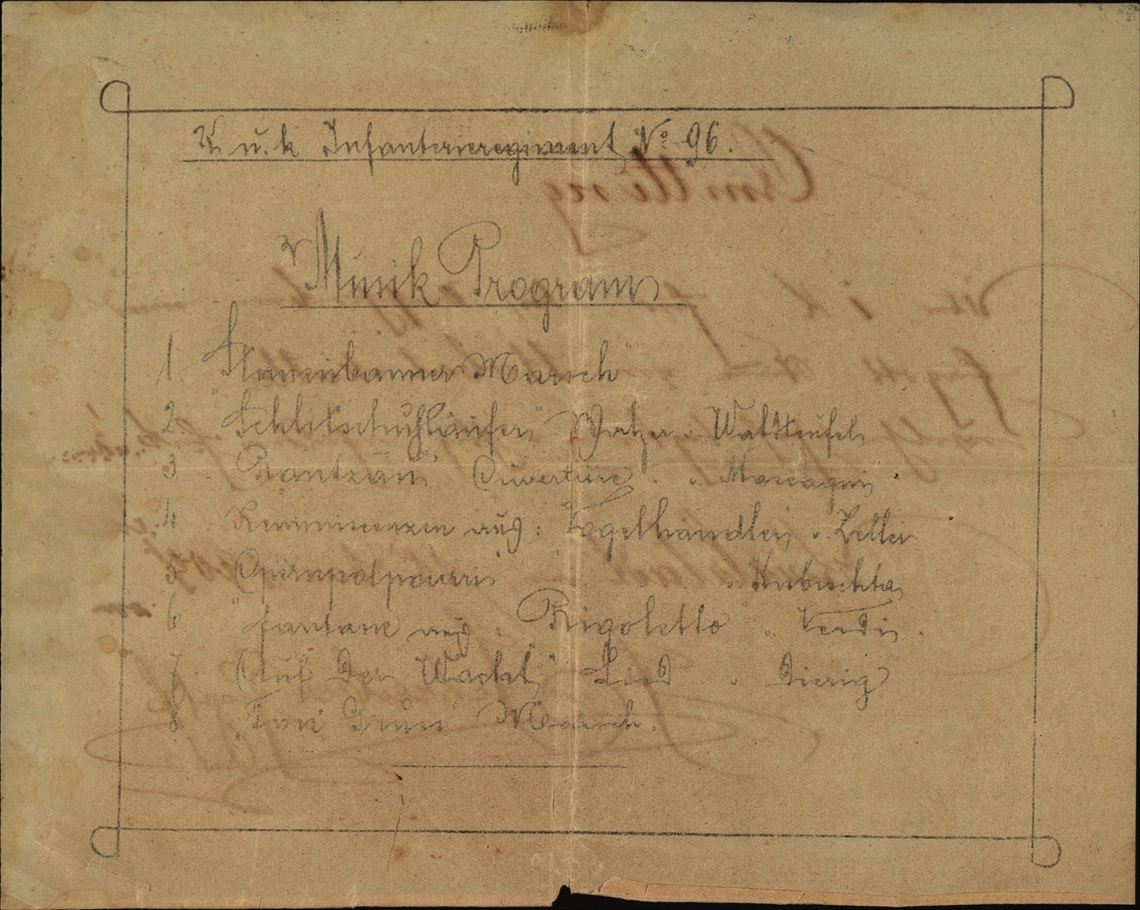 K u. k Infanterieregiment No 96.
Musik Program
1 Sternenbanner Marsch
2 "Schlitschuhläufer" Walzer v. Waldteufel
3 "Rantzau" Ouverture v. Mascagni
4 Reminiscenzen aus: Vogelhändler v. Zeller
5 Opernpotpourri v. Kubischta
6 Fantasie aus: Rigoletto v. Verdi.
7 "Auf der Wacht" Lied v. Dierig
8 Marsch.